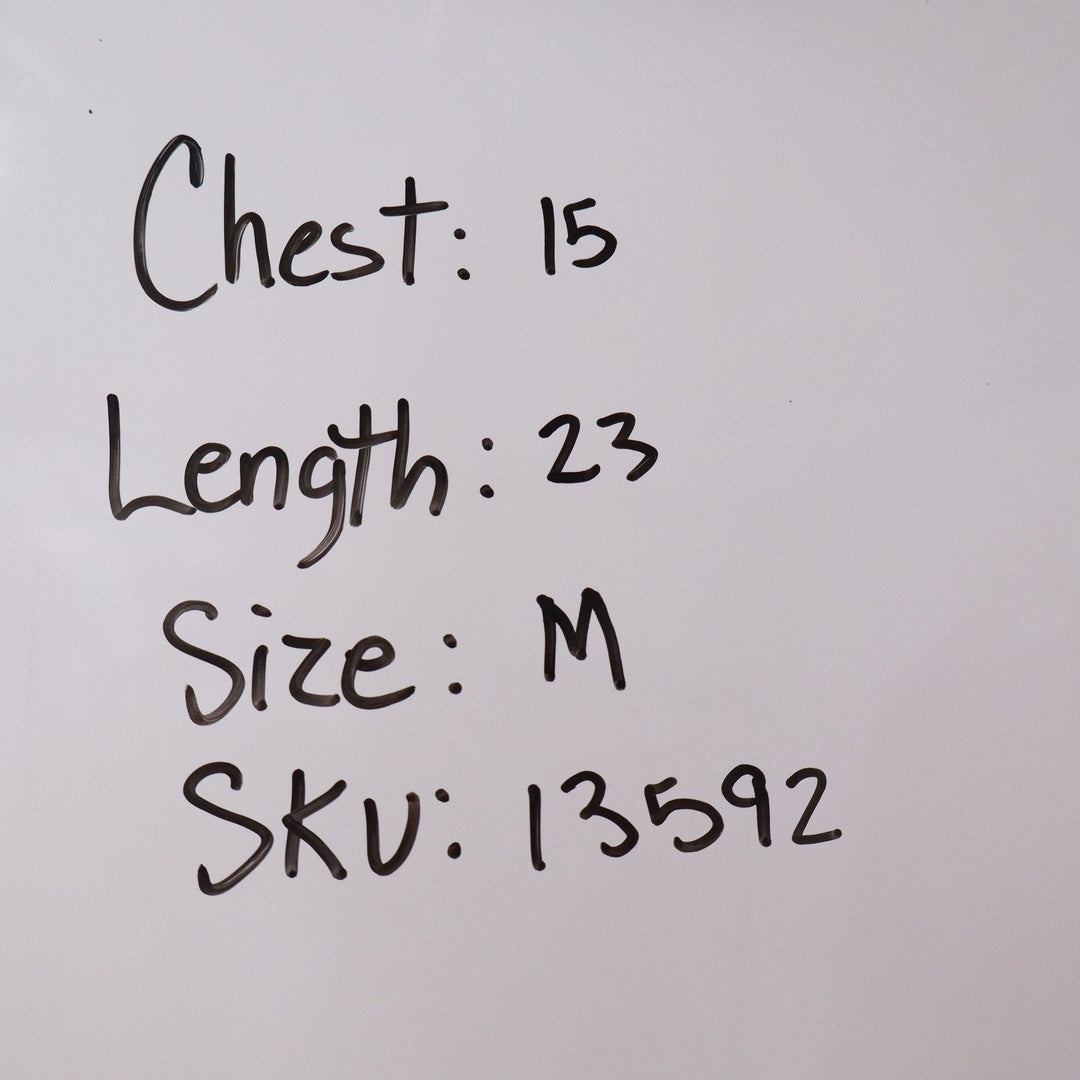 Chest: 15
Length: 23
Size: M
SKU: 13592